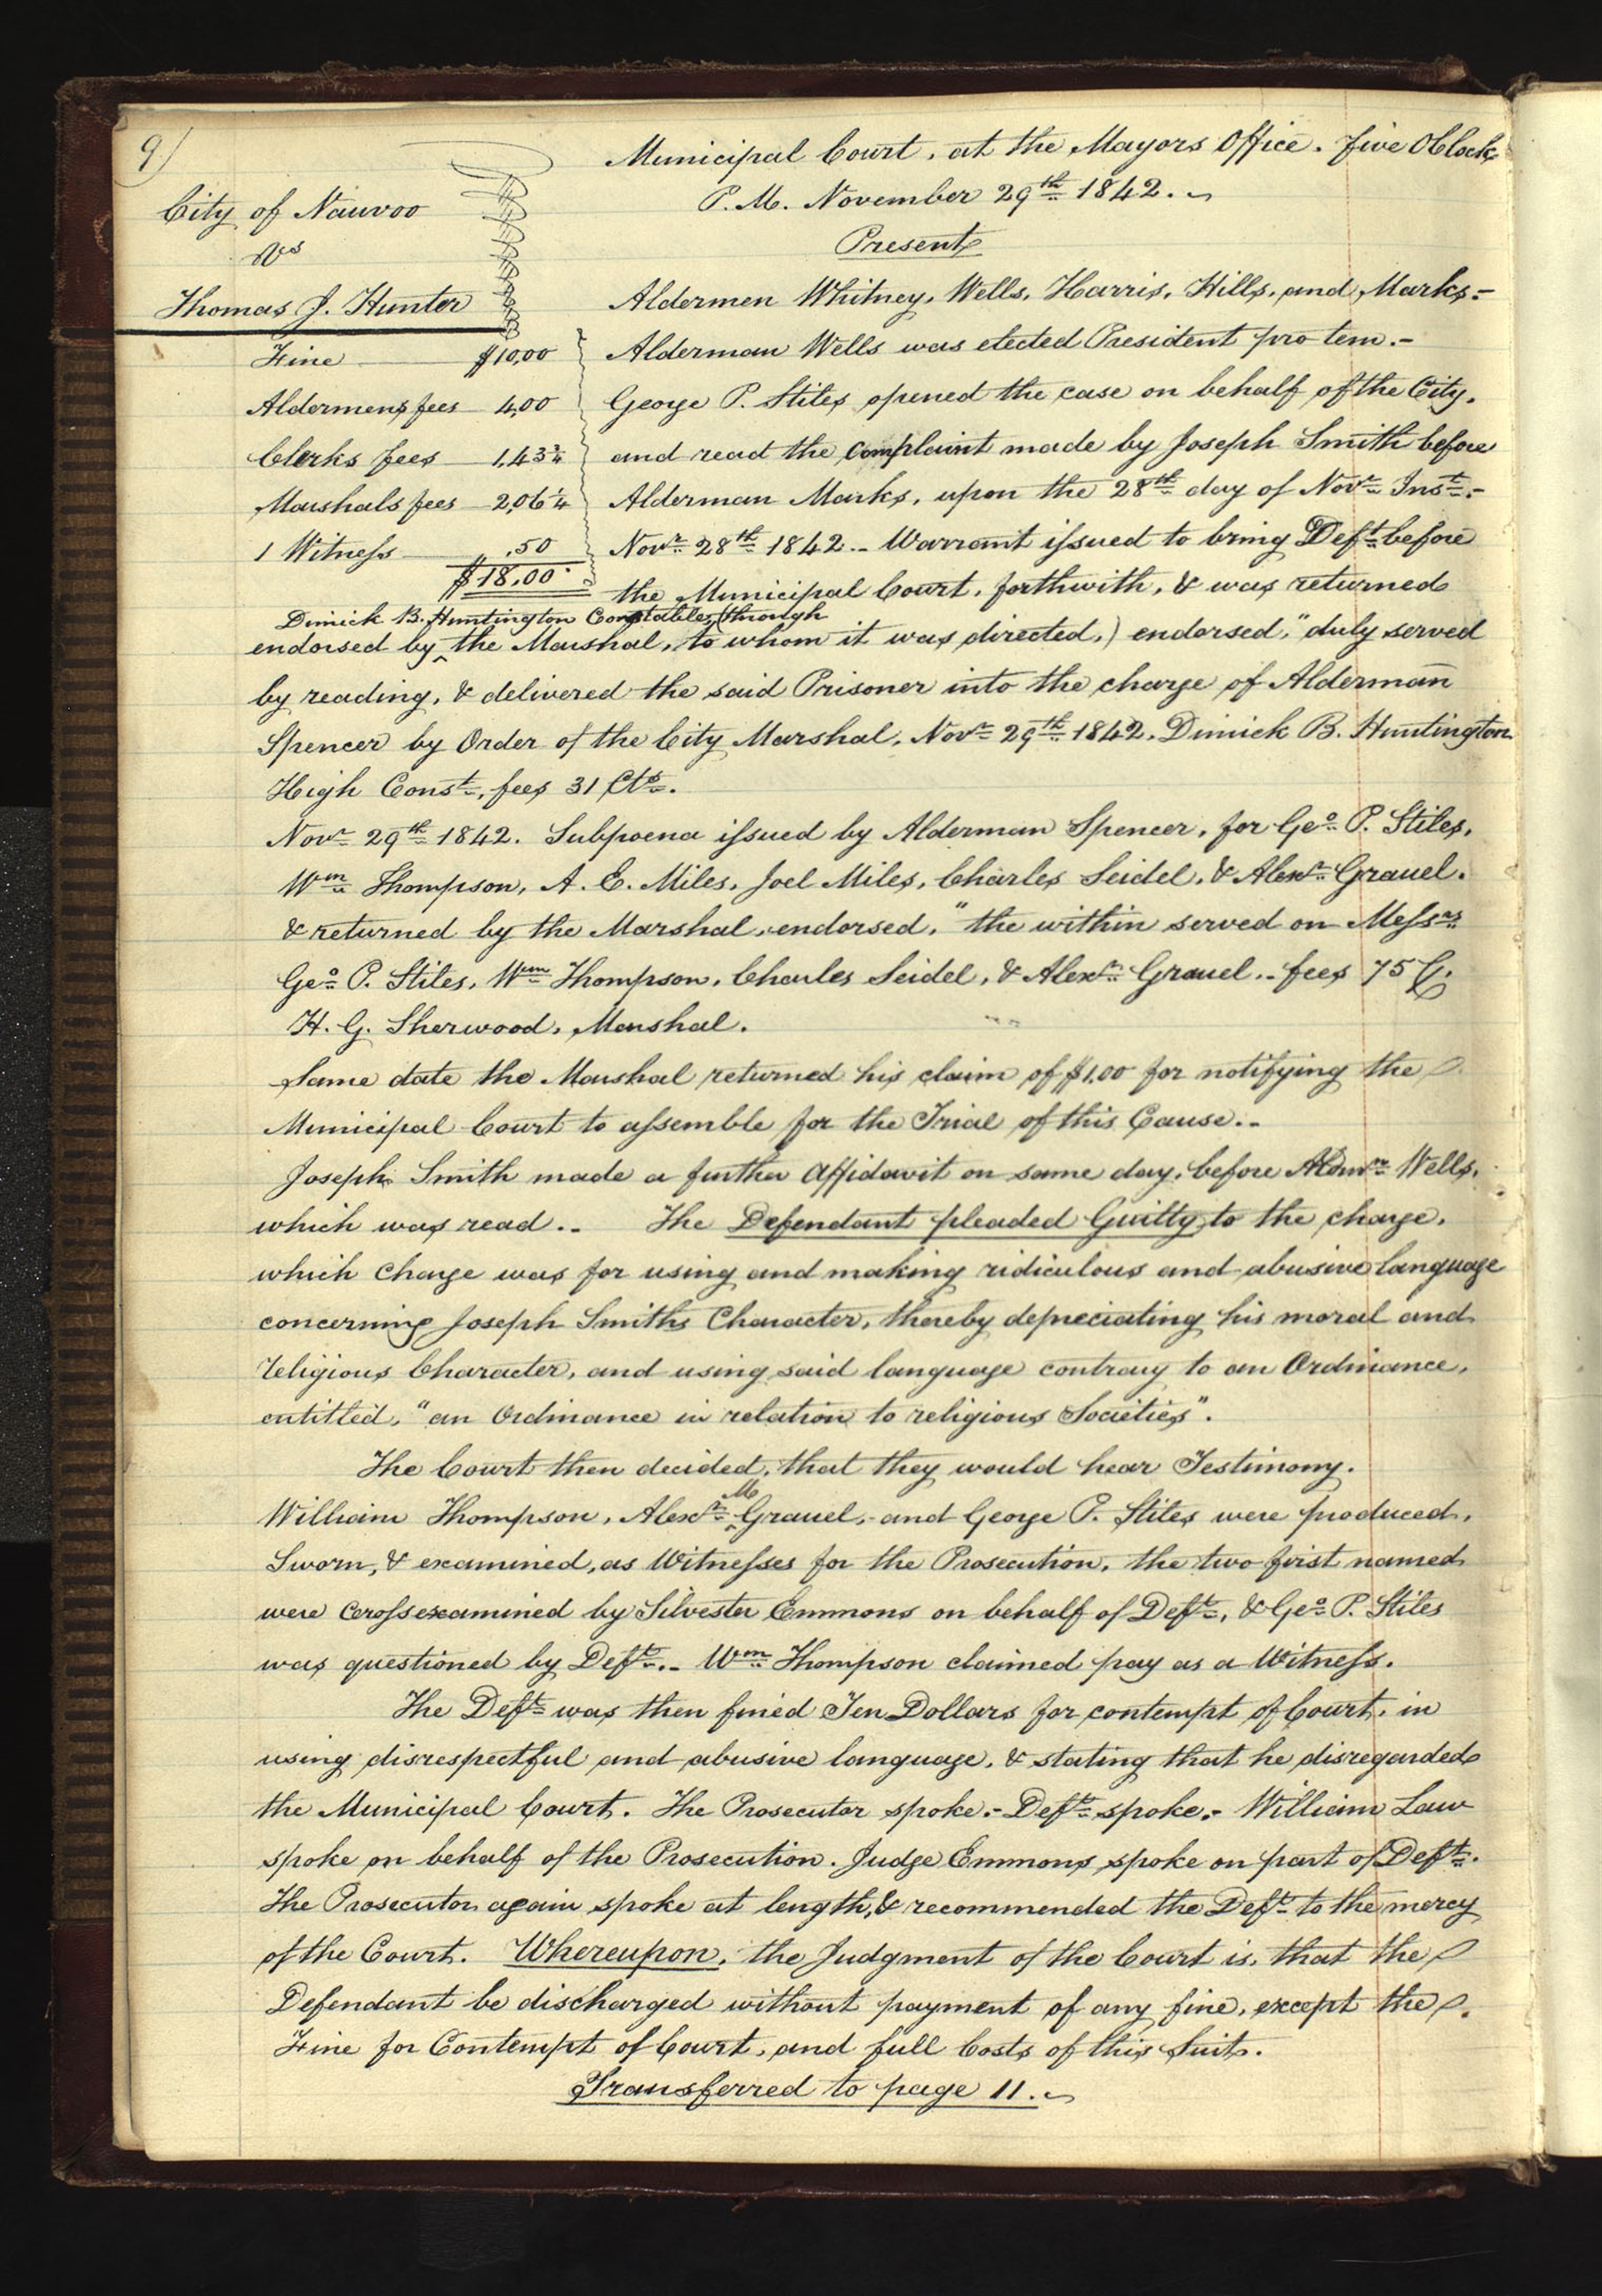 9)
Municipal Court, at the Mayors Office. Five OClock,
P.M. November 29th 1842.
Present
City of Nauvoo
vs
Thomas J. Hunter
Fine $10,00
Aldermens fees 4,00
Clerks fees 1,43¾
Marshals fees 2,06¼
1 Witness ,50
$18,00
Aldermen Whitney, Wells, Harris, Hills, and Marks:-
Alderman Wells was elected President pro tem.-
George P. Stiles opened the case on behalf of the City,
and read the complaint made by Joseph Smith before
Alderman Marks, upon the 28th day of Novr Inst.-
Novr 28th 1842.- Warrant issued to bring Deft before
the Municipal Court, forthwith, & was returned
Dimick B. Huntington Constable, (through
endorsed by ^ the Marshal, to whom it was directed,) endorsed, "duly served
by reading, & delivered the said Prisoner into the charge of Alderman
Spencer by Order of the City Marshal, Novr 29th 1842, Dimick B. Huntington
High Const, fees 31 Cts.
Novr 29th 1842. Subpoena issued by Alderman Spencer, for Geo P. Stiles,
Wm Thompson, A. E. Miles, Joel Miles, Charles Seidel, & Alexr Grauel.
& returned by the Marshal, endorsed, "the within served on Messrs
Geo P. Stiles, Wm Thompson, Charles Seidel, & Alexr Grauel.- fees 75 C.
H. G. Sherwood, Marshal.
Same date the Marshal returned his claim of $1,00 for notifying the
Municipal Court to assemble for the Trial of this Cause.-
Joseph Smith made a further Affidavit on same day, before Aldmn Wells,
which was read.- The Defendant pleaded Guilty to the charge,
which Charge was for using and making ridiculous and abusive language
concerning Joseph Smiths Character, thereby depreciating his moral and
religious Character, and using said language contrary to an Ordinance,
entitled, "an Ordinance in relation to religious Societies".
The Court then decided, that they would hear Testimony.
M
William Thompson, Alexr ^ Grauel, and George P. Stiles were produced,
Sworn, & examined, as Witnesses for the Prosecution, the two first named
were crossexamined by Silvester Emmons on behalf of Deft, & Geo P. Stiles
was questioned by Deft.- Wm Thompson claimed pay as a Witness.
The Deft was then fined Ten Dollars for contempt of Court, in
using disrespectful and abusive language, & stating that he disregarded
the Municipal Court. The Prosecutor spoke.- Deft spoke.- William Law
spoke on behalf of the Prosecution. Judge Emmons spoke on part of Deft.
The Prosecutor again spoke at length, & recommended the Deft to the mercy
of the Court. Whereupon, the Judgment of the Court is, that the
Defendant be discharged without payment of any fine, except the
Fine for Contempt of Court, and full Costs of this Suit.
Transferred to page 11.